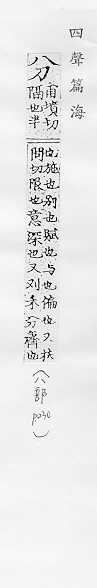 四聲篇海
分
甫墳切
隔也半
也施也別也賦也与也徧也又扶
問切限也意深也又分齊也
(八部 p030)